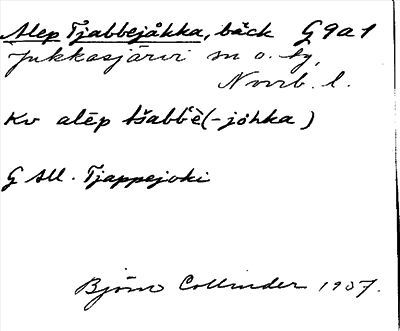 Alep Tjabbejåkka, bäck G 9 a 1
Jukkasjärvi sn o. tg,
Norrb. l.
Kv alēp tšabb̀è (-johka)
G All. Tjappejoki
Björn Collinder 1957.